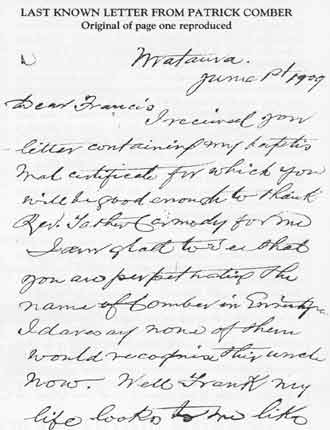 LAST KNOWN LETTER FROM PATRICK COMBER
Original of page one reproduced
Mataura.
June 1st 1909
Dear Francis
I recieved you
letter containing my baptis
mal certificate for which you
will be good enough to thank
Rev. Father Carmody for me
I am glad to see that
you are perpetuating the
name of Comber in
I daresay none of them
would recognise their uncle
now. Well Frank my
life looks to me like